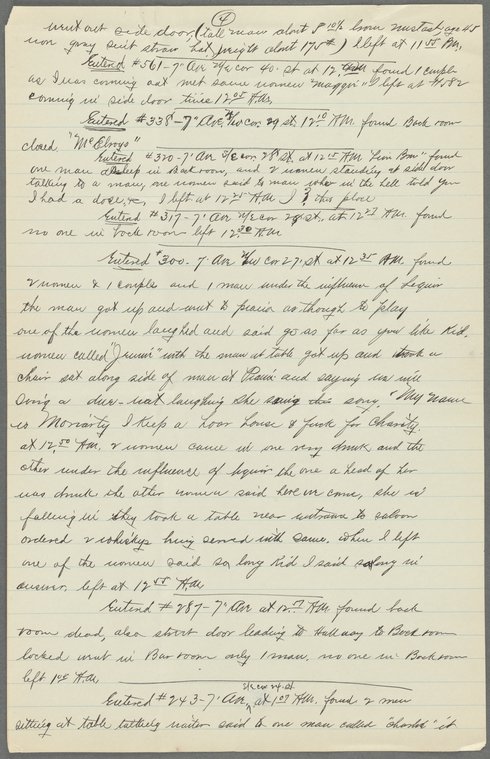 (4)
went out side door, (tall man about 5' 10½ brown mustash, age 45
worn gray suit straw hat, weight about 175#) I left at 11 55 P.M.
Entered #561-7' Ave cor 40. st at 12, found 1 couple
as I was coming out met same women "Maggie" I left at #582
coming in side door time 12 05 A.M.
Entered #338-7' Ave. N/W cor 29 st. 12 10 A.M. found Back room
closed. "McElroys"
Entered #320-7' Ave S/E cor 28' st. at 12 15 A.M. found
one man asleep in Back room, and 2 women standing at side door
talking to a man, one women said to man who in the hell told you
I had a dose, I left at 12 25 A.M. this place
Entered #317-7' Ave cor st., at 12 27 A.M. found
no one in back room left 12 30 A.M.
Entered #300-7' Ave N/W cor 27' st at 12 35 A.M. found
2 women & 1 couple and 1 man under the influence of liquor
the man got up and went to piano as though to play
one of the women laughed and said go as far as you like Kid.
women called "Jennie" with the man at table got up and took a
chair sat along side of man at Piano and saying we will
sing a duo-net laughing she sang this song. "My name
is Moriarty I keep a hoar house & fuck for Charity.
at 12,50 A.M. 2 women came in one very drunk and the
other under the influence of liquor the one ahead of her
was drunk the other women said here we come, she is
falling in they took a table near entrance to saloon
ordered 2 whiskeys being served with same. When I left
one of the women said so long Kid I said so long in
answer, left at 12 55 A.M.
Entered #287-7' Ave at 12 57 A.M. found back
room dead, also street door leading to Hallway to Back room
locked went in Bar room only 1 man, no one in Back room
left 1 05 A.M.
Entered #243-7' Ave, S/E cor 24. st. at 1 07 A.M. found 2 men
sitting at table talking waiter said to one man called "Charles" it